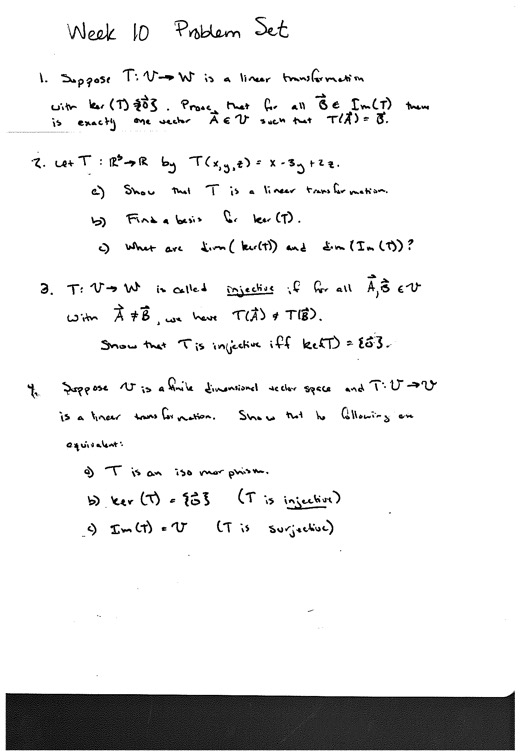 Week 10 Problem Set
1. Suppose T: V→W is a linear transformation
with ker(T) = {0⃗}. Prove that for all B⃗ ∈ Im(T) there
is exactly one vector A⃗ ∈ V such that T(A⃗) = B⃗.
2. Let T : ℝ³→ℝ by T(x,y,z) = x - 3y + 2z.
a) Show that T is a linear transformation.
b) Find a basis for ker(T).
c) What are dim(ker(T)) and dim(Im(T))?
3. T: V→W is called injective if for all A⃗,B⃗ ∈ V
with A⃗ ≠ B⃗, we have T(A⃗) ≠ T(B⃗).
Show that T is injective iff ker(T) = {0⃗}.
4. Suppose V is a finite dimensional vector space and T: V→V
is a linear transformation. Show that the following are
equivalent:
a) T is an isomorphism.
b) ker(T) = {0⃗} (T is injective)
c) Im(T) = V (T is surjective)